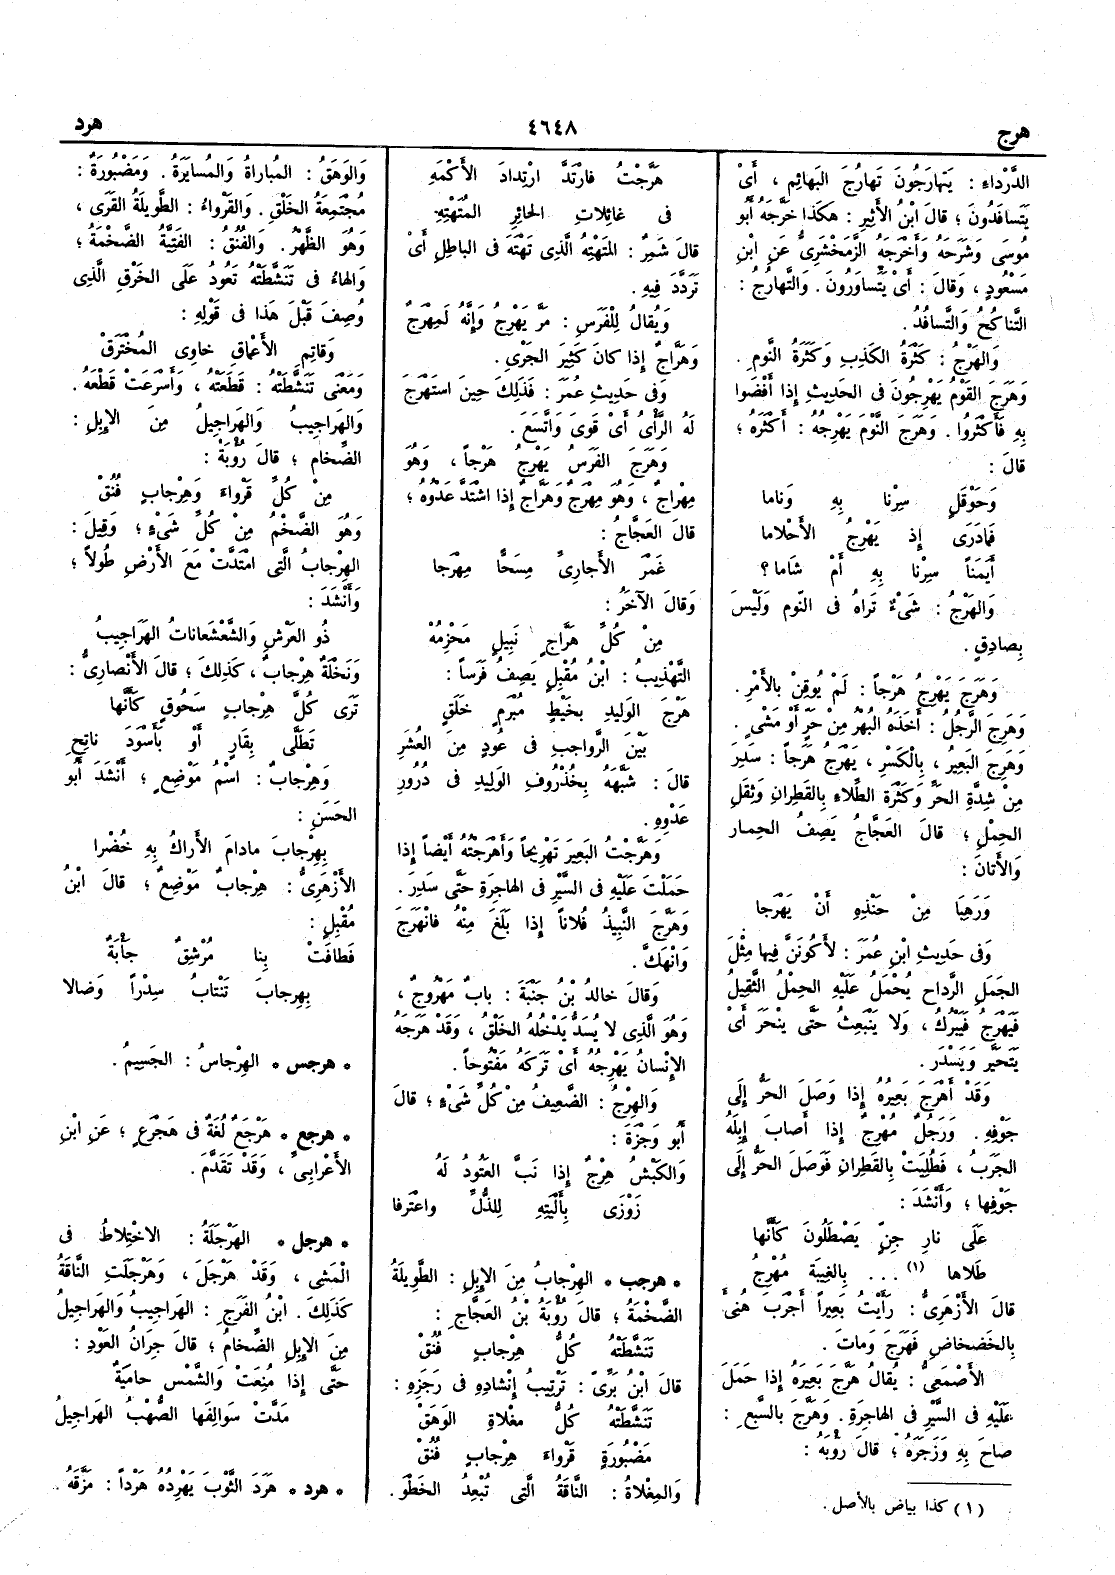 هرج
٤٦٤٨
هرد
الدَّرْداءِ : يَتَهارَجُونَ تَهارُجَ البَهائِمِ ، أَىْ
يَتَسافَدُونَ ؛ قالَ ابْنُ الأَثِيرِ : هكَذا خَرَّجَهُ أَبُو
مُوسَى وَشَرَحَهُ وَأَخْرَجَهُ الزَّمَخْشَرِىُّ عَنِ ابْنِ
مَسْعُودٍ ، وَقالَ : أَىْ يَتَساوَرُونَ. وَالتَّهارُجُ :
التَّناكُحُ وَالتَّسافُدُ.
وَالهَرْجُ : كَثْرَةُ الكَذِبِ وَكَثْرَةُ النَّومِ.
وَهَرَجَ القَوْمُ يَهْرِجُونَ فى الحَدِيثِ إِذا أَفْضَوا
بِهِ فَأَكْثَرُوا. وَهَرَجَ النَّوْمَ يَهْرِجُهُ : أَكْثَرَهُ ؛
قالَ :
وَحَوْقَلٍ سِرْنا بِهِ وَناما
فَمَادَرَى إِذ يَهْرِجُ الأَحْلاما
أَيَمَناً سِرْنا بِهِ أَمْ شَاما ؟
وَالهَرْجُ : شَىْءٌ تَراهُ فى النَّومِ وَلَيْسَ
بِصادِقٍ.
وَهَرَجَ يَهْرِجُ هَرْجاً : لَمْ يُوقِنْ بِالأَمْرِ.
وَهَرِجَ الرَّجُلُ : أَخَذَهُ البُهْرُ مِنْ حَرٍّ أَوْ مَشْىٍ.
وَهَرِجَ البَعِيرُ ، بِالْكَسْرِ ، يَهْرَجُ هَرَجاً : سَدِرَ
مِنْ شِدَّةِ الحَرِّ وَكَثْرَةِ الطِّلاءِ بِالقَطِرانِ وَثِقَلِ
الحِمْلِ ؛ قالَ العَجَّاجُ يَصِفُ الحِمارَ
وَالأَتانَ :
وَرَهِبَا مِنْ حَنْذِهِ أَنْ يَهْرَجا
وَفى حَدِيثِ ابْنِ عُمَرَ : لأَكُونَنَّ فِيها مِثْلَ
الجَمَلِ الرَّداحِ يُحْمَلُ عَلَيْهِ الحِمْلُ الثَّقِيلُ
فَيَهْرَجُ فَيَبْرُكُ ، وَلا يَنْبَعِثُ حَتَّى يُنْحَرَ أَىْ
يَتَحَيَّر وَيَسْدَر.
وَقَدْ أَهْرَجَ بَعِيرَهُ إِذا وَصَلَ الحَرُّ إِلَى
جَوْفِهِ. وَرَجُلٌ مُهْرِجٌ إِذا أَصابَ إِبِلَهُ
الجَرَبُ ، فَطُلِيَتْ بِالقَطِرانِ فَوَصَلَ الحَرُّ إِلَى
جَوْفِها ؛ وَأَنْشَدَ :
عَلَى نارِ جِنٍّ يَصْطَلُونَ كَأَنَّها
طَلاها (١) ... بِالغِيبَةِ مُهْرِجُ
قالَ الأَزْهَرِىُّ : رَأَيْتُ بَعِيراً أَجْرَبَ هُنِئَ
بِالخَضْخاضِ فَهَرِجَ وَماتَ.
الأَصْمَعِىُّ : يُقالُ هَرَّجَ بَعِيرَهُ إِذا حَمَلَ
عَلَيْهِ فى السَّيْرِ فى الهاجِرَةِ. وَهَرَّجَ بِالسَّبُعِ :
صاحَ بِهِ وَزَجَرَهُ ؛ قالَ رُؤْبَةُ :
(١) كذا بياض بالأصل.
هَرَّجْتُ فارْتَدَّ ارْتِدادَ الأَكْمَهِ
فى غائِلاتِ الحائِرِ المُتَهْتِهِ
قالَ شَمِرٌ : المُتَهْتِهُ الَّذِى تَهْتَهَ فى الباطِلِ أَىْ
تَرَدَّدَ فِيهِ.
وَيُقالُ لِلْفَرَسِ : مَرَّ يَهْرِجُ وَإِنَّهُ لَمِهْرَجٌ
وَهَرَّاجٌ إِذا كانَ كَثِيرَ الجَرْىِ.
وَفى حَدِيثِ عُمَرَ : فَذَلِكَ حِينَ اسْتَهْرَجَ
لَهُ الرَّأْىُ أَىْ قَوِىَ وَاتَّسَعَ.
وَهَرَجَ الفَرَسُ يَهْرِجُ هَرْجاً ، وَهُوَ
مِهْراجٌ ، وَهُوَ مِهْرَجٌ وَهَرَّاجٌ إِذا اشْتَدَّ عَدْوُهُ ؛
قالَ العَجَّاجُ :
غَمْرَ الأَجارِىِّ مِسَحًّا مِهْرَجا
وَقالَ الآخَرُ :
مِنْ كُلِّ هَرَّاجٍ نَبِيلٍ مَحْزِمُهْ
التَّهْذِيبُ : ابْنُ مُقْبِلٍ يَصِفُ فَرَساً :
هَرْجَ الوَلِيدِ بِخَيْطٍ مُبْرَمٍ خَلَقٍ
بَيْنَ الرَّواجِبِ فى عُودٍ مِنَ العُشَرِ
قالَ : شَبَّهَهُ بِخُذْرُوفِ الوَلِيدِ فى دُرُورِ
عَدْوِهِ.
وَهَرَّجْتُ البَعِيرَ تَهْرِيجاً وَأَهْرَجْتُهُ أَيْضاً إِذا
حَمَلْتَ عَلَيْهِ فى السَّيْرِ فى الهاجِرَةِ حَتَّى سَدِرَ.
وَهَرَّجَ النَّبِيذُ فُلاناً إِذا بَلَغَ مِنْهُ فانْهَرَجَ
وَانْهَكَّ.
وَقالَ خالِدُ بْنُ جَنْبَةَ : بابٌ مَهْرُوجٌ ،
وَهُوَ الَّذِى لا يُسَدُّ يَدْخُلُهُ الخَلْقُ ، وَقَدْ هَرَجَهُ
الإِنْسانُ يَهْرِجُهُ أَىْ تَرَكَهُ مَفْتُوحاً.
وَالهِرْجُ : الضَّعِيفُ مِنْ كُلِّ شَىْءٍ ؛ قالَ
أَبُو وَجْزَةَ :
وَالكَبْشُ هِرْجٌ إِذا نَبَّ العَتُودُ لَهُ
زَوْزَى بِأَلْيَتِهِ لِلذُّلِّ واعْتَرفا
* هرجب * الهِرْجابُ مِنَ الإِبِلِ : الطَّوِيلَةُ
الضَّخْمَةُ ؛ قالَ رُؤْبَةُ بْنُ العَجَّاجِ :
تَنَشَّطَتْهُ كُلُّ هِرْجابٍ فُنُقْ
قالَ ابْنُ بَرِّىّ : تَرْتِيبُ إِنْشادِهِ فى رَجَزِهِ :
تَنَشَّطَتْهُ كُلُّ مِغْلاةِ الوَهَقْ
مَضْبُورَةٍ قَرْواءَ هِرْجابٍ فُنُقْ
وَالمِغْلاةُ : النَّاقَةُ الَّتِى تُبْعِدُ الخَطْوَ.
وَالوَهَقُ : المُباراةُ وَالمُسايَرَةُ. وَمَضْبُورَةٌ :
مُجْتَمِعَةُ الخَلْقِ. وَالقَرْواءُ : الطَّوِيلَةُ القَرَى ،
وَهُوَ الظَّهْرُ. وَالفُنُقُ : الفَتِيَّةُ الضَّخْمَةُ ؛
وَالهاءُ فى تَنَشَّطَتْهُ تَعُودُ عَلَى الخَرْقِ الَّذِى
وُصِفَ قَبْلَ هَذا فى قَوْلِهِ :
وَقاتِمِ الأَعْماقِ خاوِى المُخْتَرَقْ
وَمَعْنَى تَنَشَّطَتْهُ : قَطَعَتْهُ ، وَأَسْرَعَتْ قَطْعَهُ.
وَالهَراجِيبُ وَالهَراجِيلُ مِنَ الإِبِلِ :
الضِّخامُ ؛ قالَ رُؤْبَةُ :
مِنْ كُلِّ قَرْواءَ وَهِرْجابٍ فُنُقْ
وَهُوَ الضَّخْمُ مِنْ كُلِّ شَىْءٍ ؛ وَقِيلَ :
الهِرْجابُ الَّتِى امْتَدَّتْ مَعَ الأَرْضِ طُولاً ؛
وَأَنْشَدَ :
ذُو العَرْشِ وَالشَّعْشَعاناتُ الهَراجِيبُ
وَنَخْلَةٌ هِرْجابٌ ، كَذلِكَ ؛ قالَ الأَنْصارِىُّ :
تَرَى كُلَّ هِرْجابٍ سَحُوقٍ كَأَنَّها
تَطَلَّى بِقارٍ أَوْ بِأَسْوَدَ ناتِحِ
وَهِرْجابٌ : اسْمُ مَوْضِعٍ ؛ أَنْشَدَ أَبُو
الحَسَنِ :
بِهِرْجابَ مادامَ الأَراكُ بِهِ خُضْرا
الأَزْهَرِىُّ : هِرْجابٌ مَوْضِعٌ ؛ قالَ ابْنُ
مُقْبِلٍ :
فَطافَتْ بِنا مُرْشِقٌ جَأْبَةٌ
بِهِرجابَ تَنْتابُ سِدْراً وَضالا
* هرجس * الهِرْجاسُ : الجَسِيمُ.
* هرجع * هَرْجَعٌ لُغَةٌ فى هَجْرَعٍ ؛ عَنِ ابْنِ
الأَعْرابىِّ ، وَقَدْ تَقَدَّمَ.
* هرجل * الهَرْجَلَةُ : الاخْتِلاطُ فى
الْمَشىِ ، وَقَدْ هَرْجَلَ ، وَهَرْجَلَتِ النَّاقَةُ
كَذَلِكَ. ابْنُ الفَرَجِ : الهَراجِيبُ وَالهَراجِيلُ
مِنَ الإِبِلِ الضِّخامُ ؛ قالَ جِرانُ العَوْدِ :
حَتَّى إِذا مُنِعَتْ وَالشَّمْس حامِيَةٌ
مَدَّتْ سَوالِفَها الصُّهْبُ الهَراجِيلُ
* هرد * هَرَدَ الثَّوْبَ يَهْرِدُهُ هَرْداً : مَزَّقَهُ.